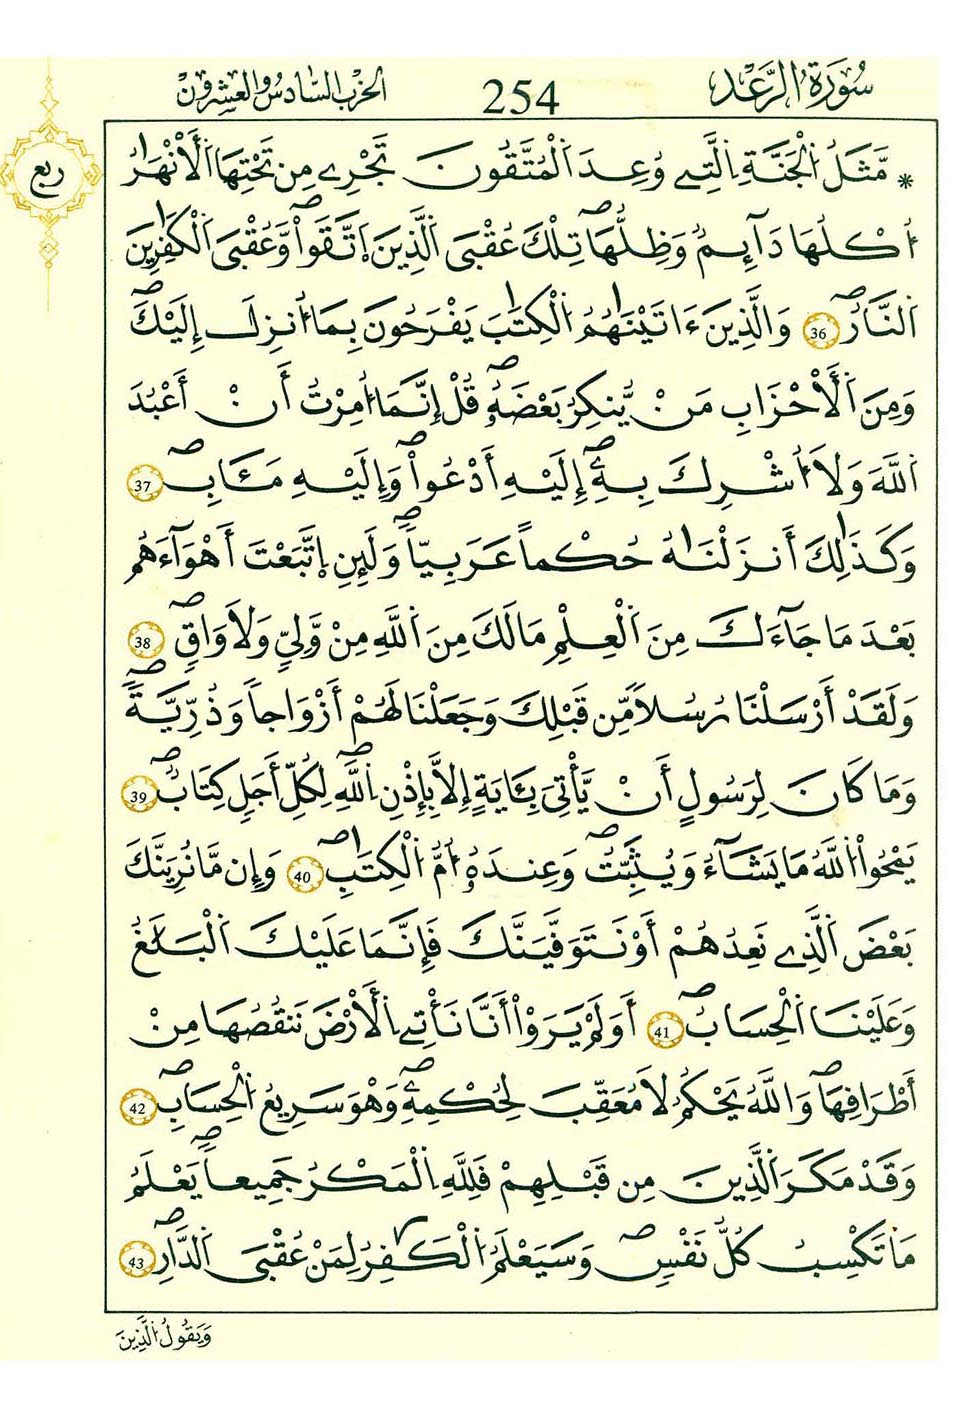 سُورَةُ الرَّعْدِ 254 الحزب السادس والعشرون
ربع
* مَّثَلُ اُ۬لْجَنَّةِ اِ۬لتِے وُعِدَ اَ۬لْمُتَّقُونَ تَجْرِے مِن تَحْتِهَا اَ۬لْأَنْهَٰرُ
أُكْلُهَا دَآئِمٌ وَظِلُّهَاۖ تِلْكَ عُقْبَى اَ۬لذِينَ اَ۪تَّقَواْۖ وَّعُقْبَى اَ۬لْكَٰفِرِينَ
اَ۬لنَّارُۖ 36 وَالذِينَ ءَاتَيْنَٰهُمُ اُ۬لْكِتَٰبَ يَفْرَحُونَ بِمَا أُنزِلَ إِلَيْكَۖ
وَمِنَ اَ۬لْأَحْزَابِ مَنْ يُّنكِرُ بَعْضَهُۥۖ قُلْ إِنَّمَا أُمِرْتُ أَنْ أَعْبُدَ
اَ۬للَّهَ وَلَا أُشْرِكَ بِهِۦۖ إِلَيْهِ أَدْعُواْۖ وَإِلَيْهِ مَـَٔابِۖ 37
وَكَذَٰلِكَ أَنزَلْنَٰهُ حُكْماً عَرَبِيّاًۖ وَلَئِنِ اِ۪تَّبَعْتَ أَهْوَآءَهُم
بَعْدَ مَا جَآءَكَ مِنَ اَ۬لْعِلْمِ مَا لَكَ مِنَ اَ۬للَّهِ مِنْ وَّلِيّٖ وَلَا وَاقٖۖ 38
وَلَقَدْ أَرْسَلْنَا رُسُلاً مِّن قَبْلِكَ وَجَعَلْنَا لَهُمْ أَزْوَاجاً وَذُرِّيَّةًۖ
وَمَا كَانَ لِرَسُولٍ أَنْ يَّأْتِيَ بِـَٔايَةٍ إِلَّا بِإِذْنِ اِ۬للَّهِۖ لِكُلِّ أَجَلٖ كِتَابٌۖ 39
يَمْحُواْ اُ۬للَّهُ مَا يَشَآءُ وَيُثَبِّتُۖ وَعِندَهُۥ أُمُّ اُ۬لْكِتَٰبِۖ 40 وَإِن مَّا نُرِيَنَّكَ
بَعْضَ اَ۬لذِے نَعِدُهُمْ أَوْ نَتَوَفَّيَنَّكَ فَإِنَّمَا عَلَيْكَ اَ۬لْبَلَٰغُ
وَعَلَيْنَا اَ۬لْحِسَابُۖ 41 أَوَلَمْ يَرَوْاْ اَنَّا نَأْتِے اِ۬لْأَرْضَ نَنقُصُهَا مِنْ
أَطْرَافِهَاۖ وَاللَّهُ يَحْكُمُ لَا مُعَقِّبَ لِحُكْمِهِۦۖ وَهْوَ سَرِيعُ اُ۬لْحِسَابِۖ 42
وَقَدْ مَكَرَ اَ۬لذِينَ مِن قَبْلِهِمْ فَلِلَّهِ اِ۬لْمَكْرُ جَمِيعاًۖ يَعْلَمُ
مَا تَكْسِبُ كُلُّ نَفْسٖۖ وَسَيَعْلَمُ اُ۬لْكَٰفِرُ لِمَنْ عُقْبَى اَ۬لدَّارِۖ 43
وَيَقُولُ الَّذِينَ